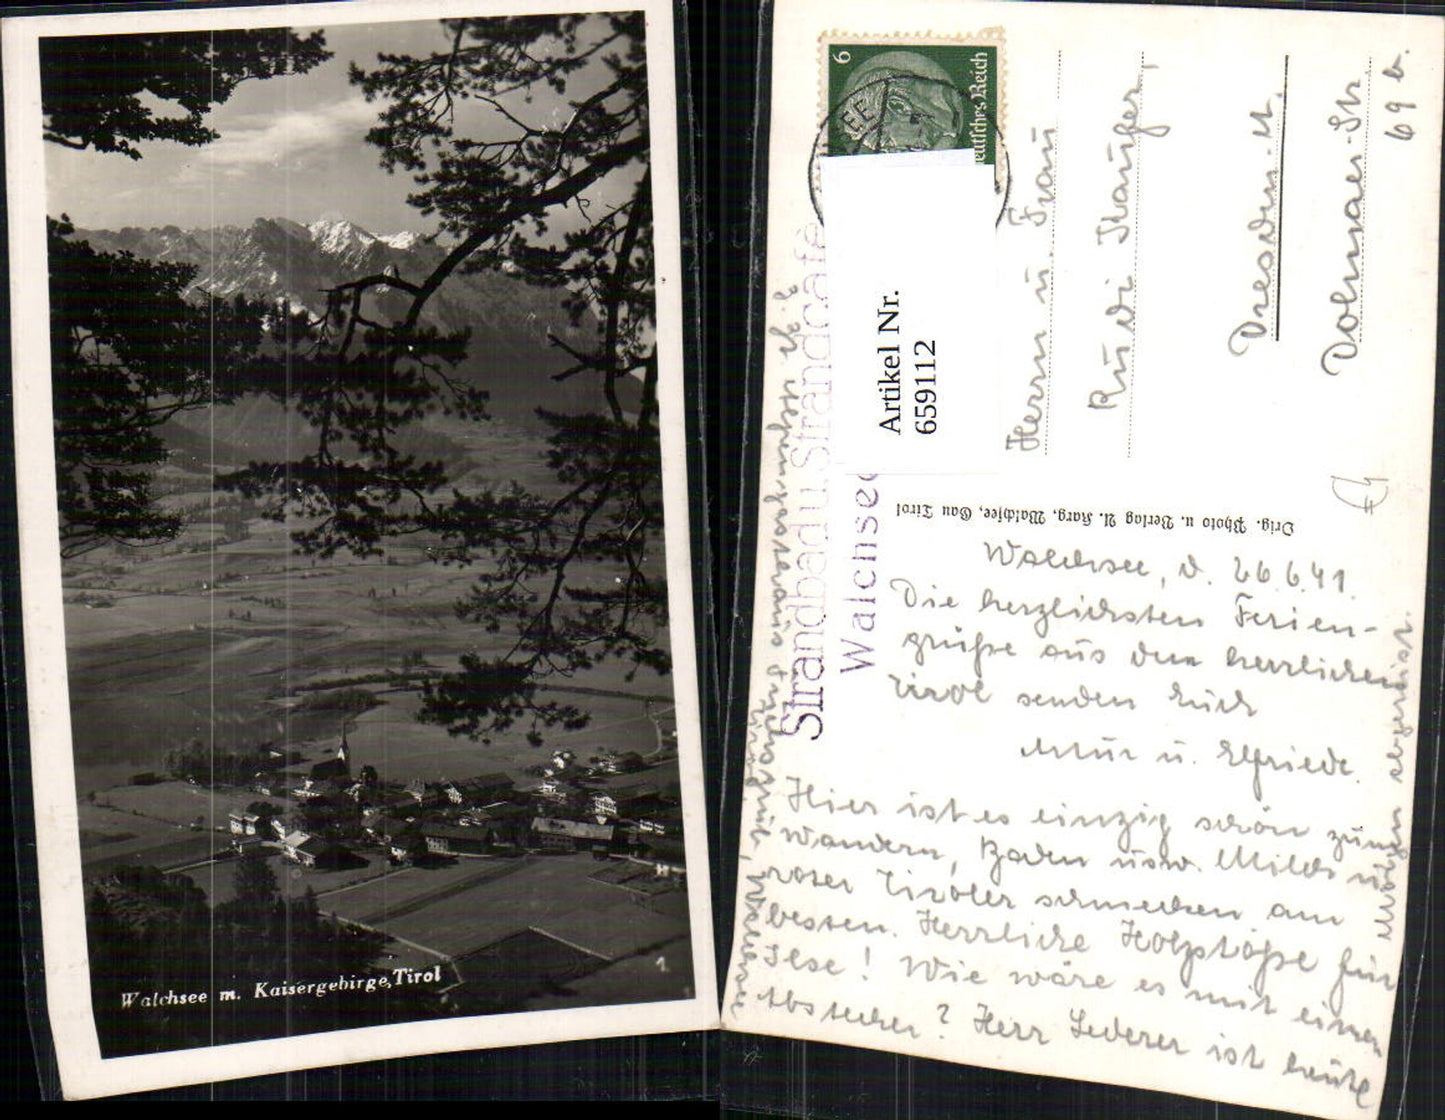 Walchsee m. Kaisergebirge, Tirol
1
6
Deutsches Reich
Artikel Nr.
659112
Strandbad u. Strandcafé
Walchsee
Herrn u. Frau
Rudi
Dresden-A.
Dohnaer-Str.
69 b.
Orig. Photo u. Verlag A. Karg, Walchsee, Gau Tirol
Walchsee, d. 26.6.41.
Die herzlichsten Ferien-
grüße aus dem herrlichen
Tirol senden Euch
Artur u. Elfriede.
Hier ist es einzig schön zum
Wandern, Baden usw. Milch u.
roter Tiroler schmecken am
besten. Herrliche Holzstöße für
Ilse! Wie wäre es mit einem
Abstecher? Herr Lederer ist heute
Morgen abgereist.